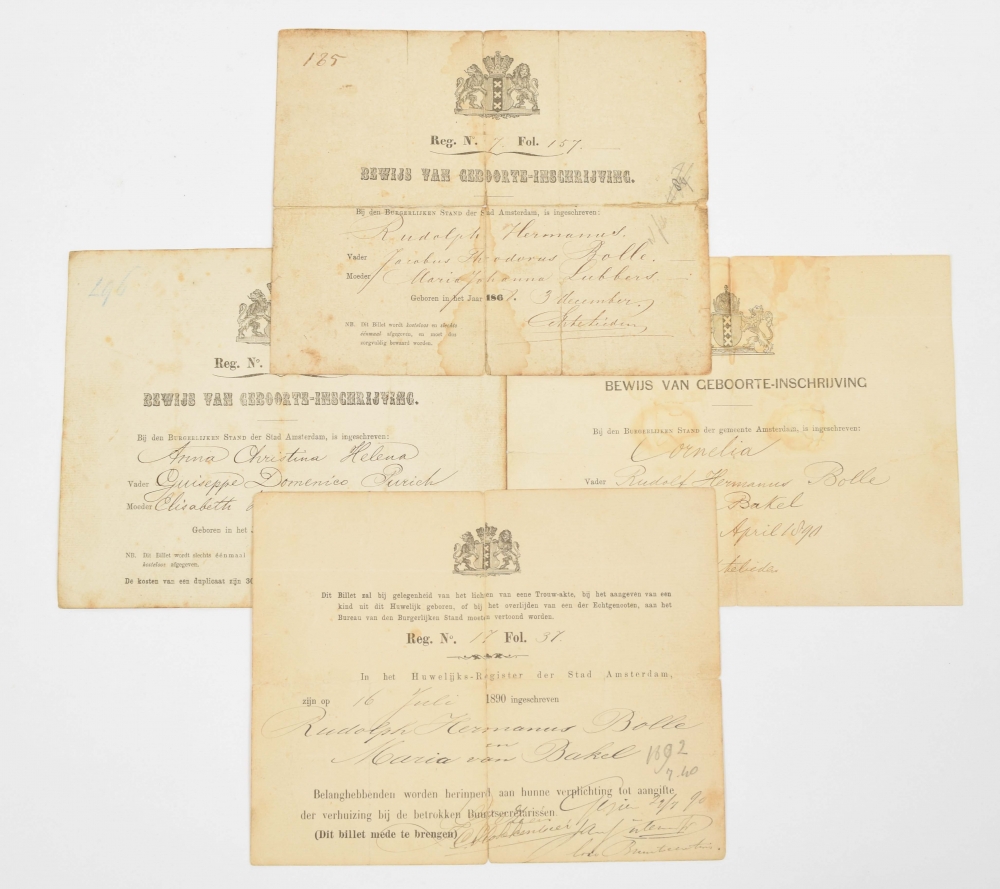 185
Reg. N°. 7. Fol. 157.
BEWIJS VAN GEBOORTE-INSCHRIJVING.
Bij den BURGERLIJKEN STAND der Stad Amsterdam, is ingeschreven:
Rudolph Hermanus.
Vader Jacobus Theodorus Bolle.
Moeder Maria Johanna Lubbers
Geboren in het Jaar 1867. 3 december.
NB. Dit Billet wordt kosteloos en slechts
éénmaal afgegeven, en moet dus
zorgvuldig bewaard worden.
296
Reg. N°.
BEWIJS VAN GEBOORTE-INSCHRIJVING.
Bij den BURGERLIJKEN STAND der Stad Amsterdam, is ingeschreven:
Anna Christina Helena
Vader Guiseppe Domenico Purich
Moeder Elisabeth
Geboren in het
NB. Dit Billet wordt slechts éénmaal
kosteloos afgegeven.
De kosten van een duplicaat zijn 30
BEWIJS VAN GEBOORTE-INSCHRIJVING
Bij den BURGERLIJKEN STAND der gemeente Amsterdam, is ingeschreven:
Cornelia
Vader Rudolf Hermanus Bolle
Bakel
April 1891
Dit Billet zal bij gelegenheid van het lichten van eene Trouw-akte, bij het aangeven van een
kind uit dit Huwelijk geboren, of bij het overlijden van een der Echtgenooten, aan het
Bureau van den Burgerlijken Stand moeten vertoond worden.
Reg. N°. 17 Fol. 37.
In het Huwelijks-Register der Stad Amsterdam,
zijn op 16 Juli 1890 ingeschreven
Rudolph Hermanus Bolle
en
Maria van Bakel
1892
7.40
Belanghebbenden worden herinnerd aan hunne verplichting tot aangifte
der verhuizing bij de betrokken Buurtsecretarissen.
(Dit billet mede te brengen)